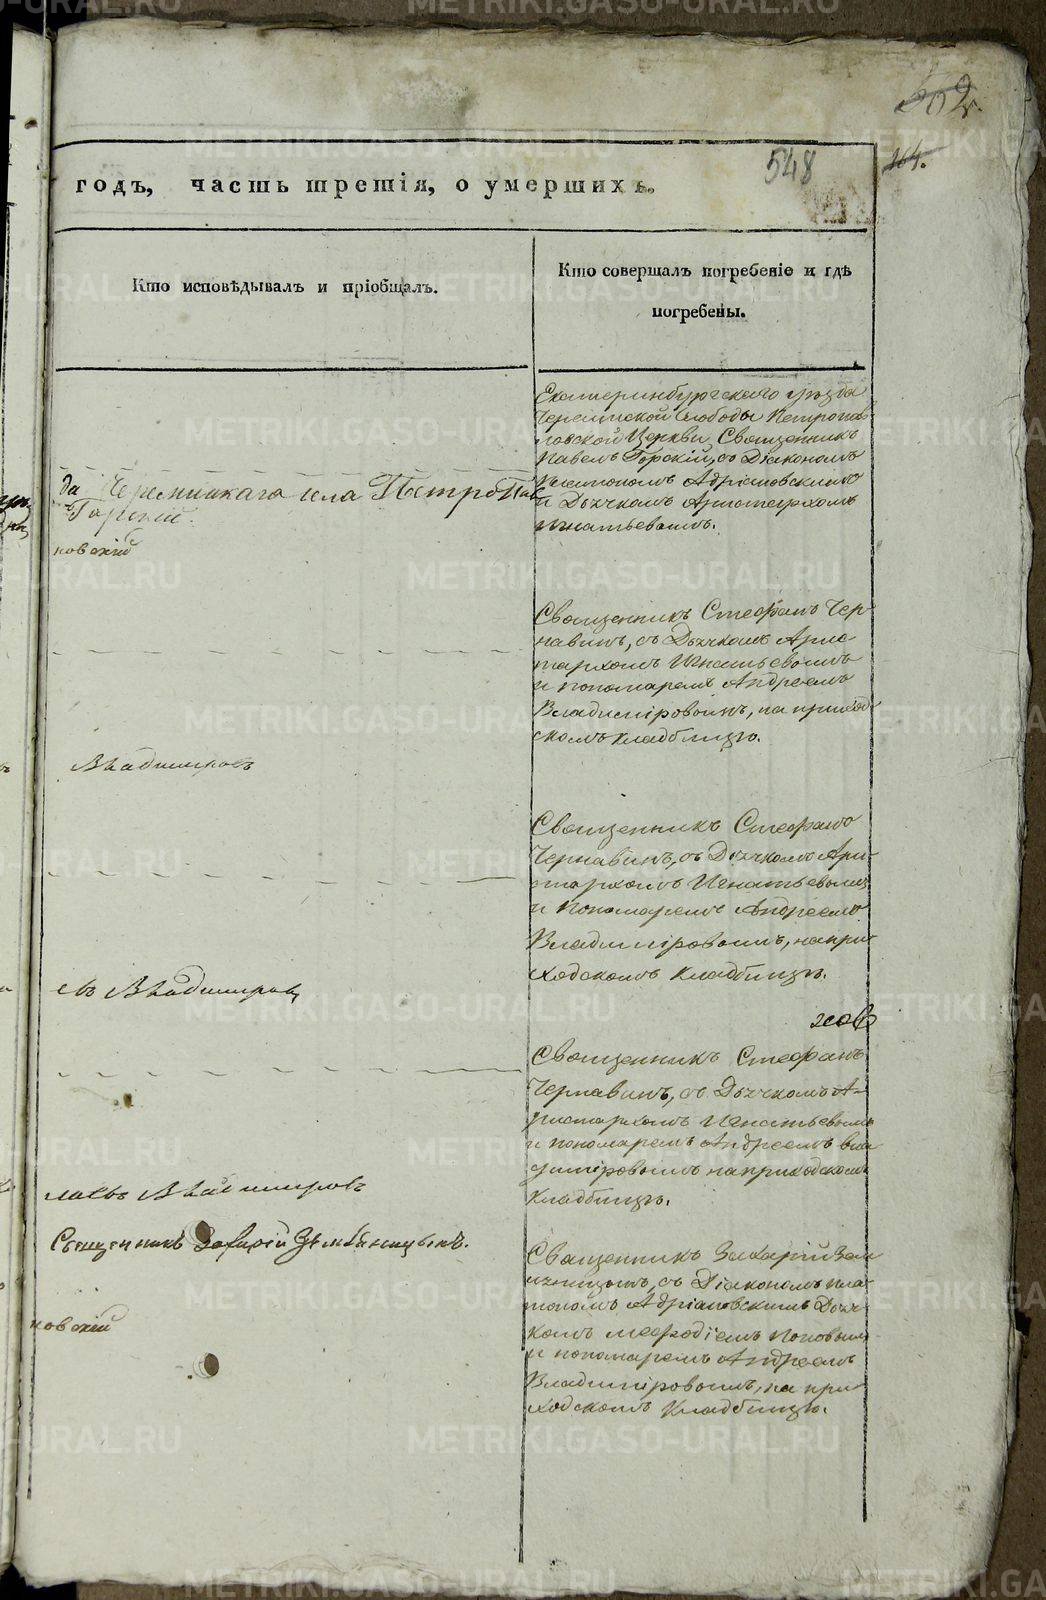 548
164.
годъ, часть третія, о умершихъ.
Кто исповѣдывалъ и пріобщалъ.
Кто совершалъ погребеніе и гдѣ
погребены.
Екатеринбургскаго уѣзда
Слободы Петропав-
ловской Церкви Священникъ
Павелъ Горскій, съ Діакономъ
Платономъ Адріановскимъ
и Дьячкомъ Аристархомъ
Игнатьевымъ.
да села Петропав
Горскій.
новскій
Священникъ Стефанъ Чер-
навинъ, съ Дьячкомъ Арис-
тархомъ Игнатьевымъ
и пономаремъ Андреемъ
Владиміровымъ, на приход-
скомъ кладбищѣ.
Владимировъ
Священникъ Стефанъ
Чернавинъ, съ Дьячкомъ Ари-
стархомъ Игнатьевымъ
и Пономаремъ Андреемъ
Владиміровымъ, на при-
ходскомъ кладбищѣ.
въ Владимировъ
Священникъ Стефанъ
Чернавинъ, съ Дьячкомъ А-
ристархомъ Игнатьевымъ
и пономаремъ Андреемъ Вла-
диміровымъ на приходскомъ
кладбищѣ.
Владимировъ
Священникъ Захарій Землиницынъ.
Священникъ Захарій Зем-
съ Діакономъ Пла-
тономъ Адріановскимъ Дьяч-
комъ Мефодіемъ Поповымъ
и пономаремъ Андреемъ
Владиміровымъ, на при-
ходскомъ Кладбищѣ.
новскій
METRIKI.GASO-URAL.RU